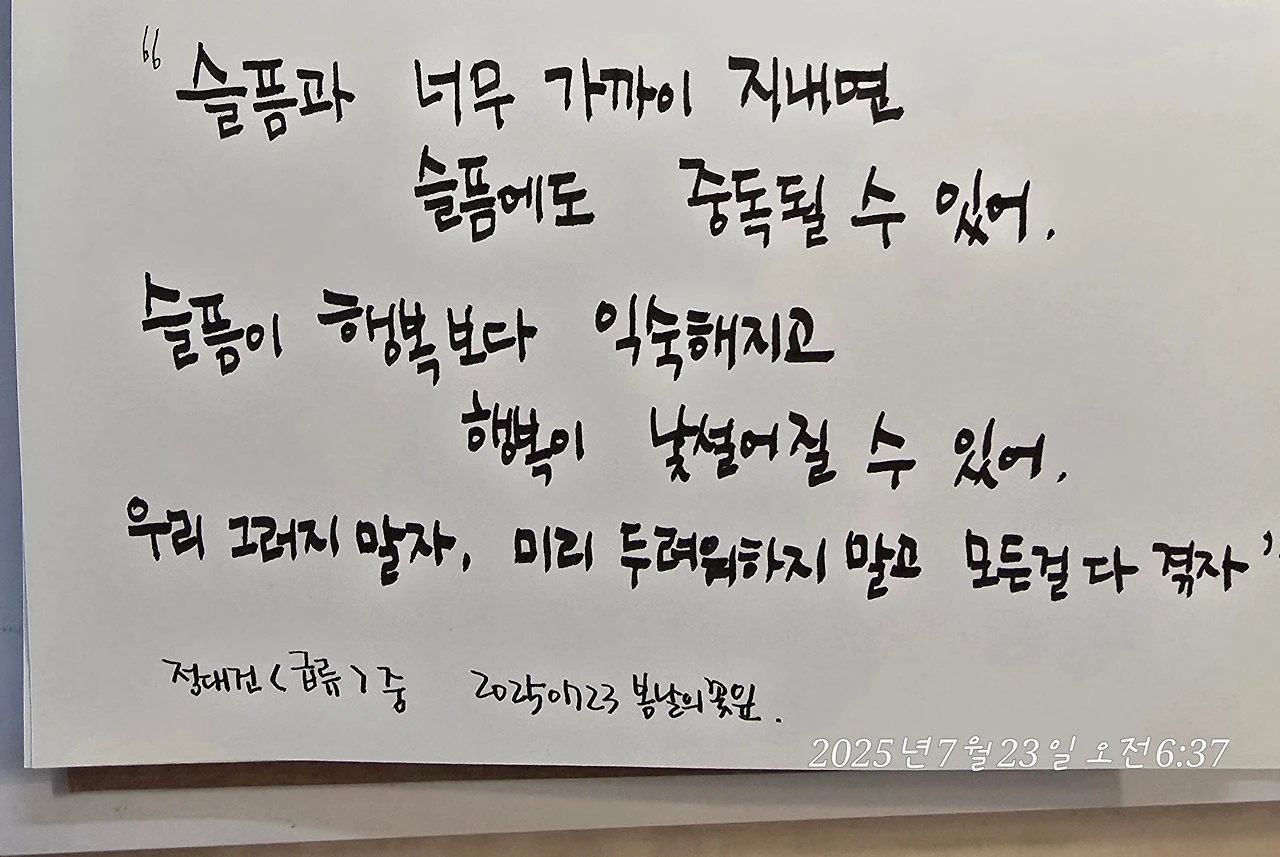 “ 슬픔과 너무 가까이 지내면
슬픔에도 중독될 수 있어.
슬픔이 행복보다 익숙해지고
행복이 낯설어질 수 있어.
우리 그러지 말자, 미리 두려워하지 말고 모든걸 다 겪자”
정대건 <급류> 중 20250723 봄날의꽃잎.
2025년7월23일 오전6:37